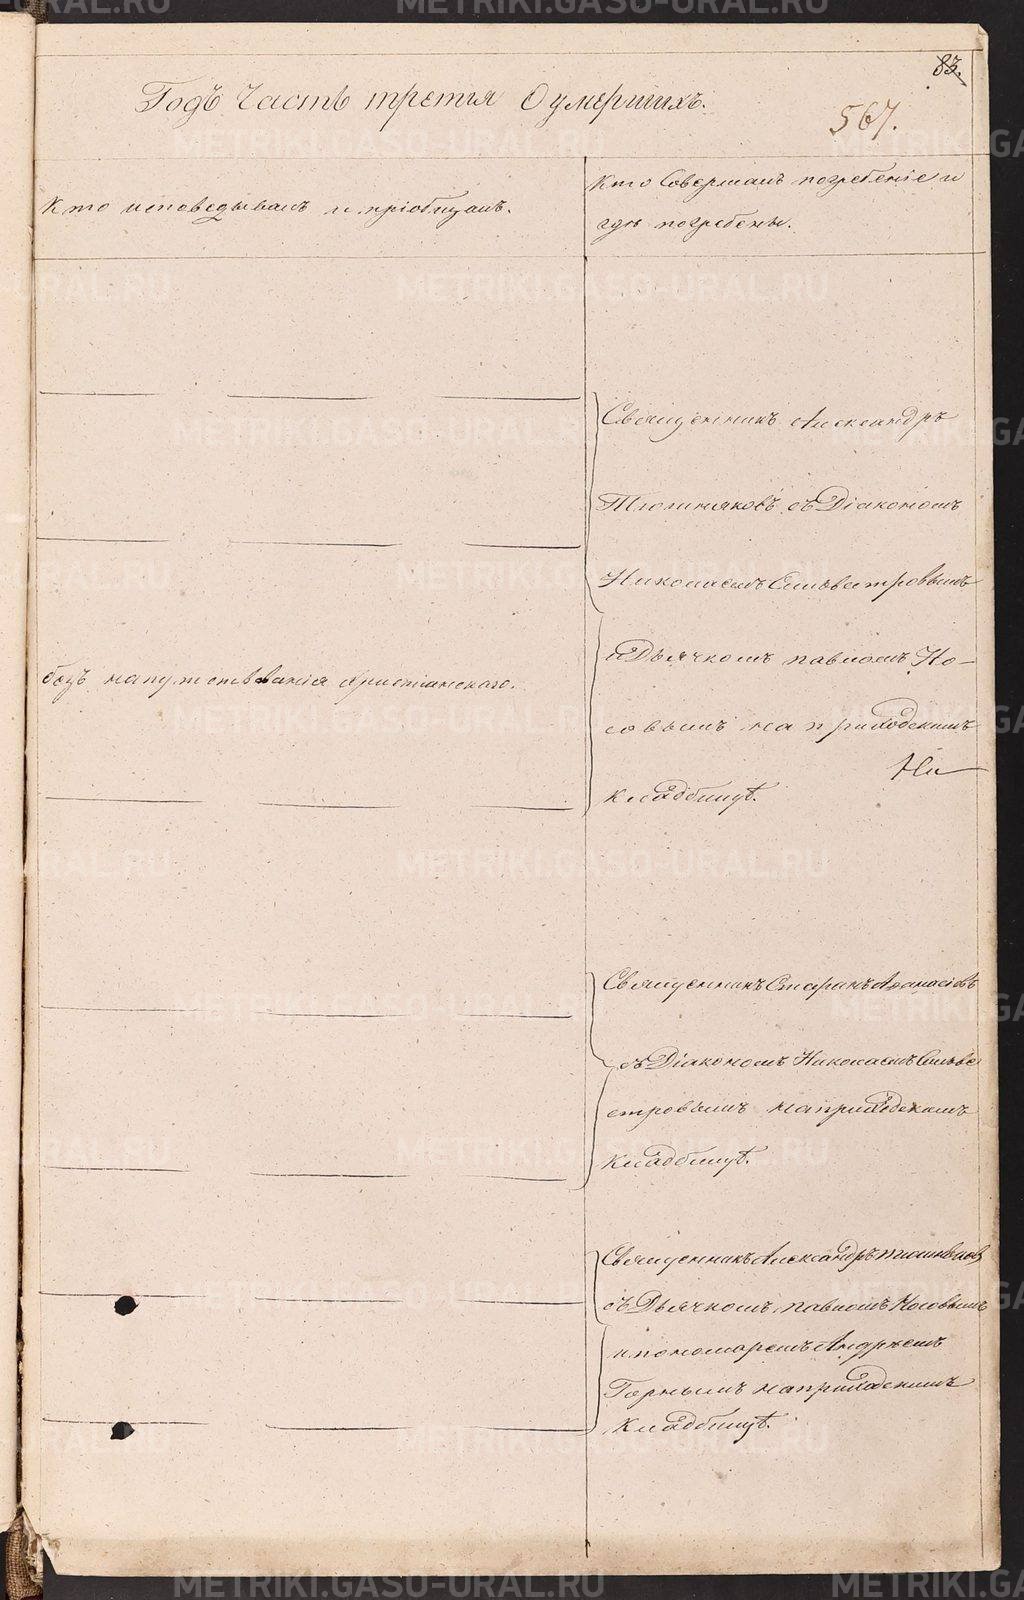 83.
Годъ Часть третья О умершихъ.
567.
Кто исповѣдывалъ и пріобщалъ.
Кто Совершалъ погребеніе и
гдѣ погребены.
Священникъ Александръ
Тюшняковъ съ Діакономъ
Николаемъ Сильвестровымъ
и Дьячкомъ павломъ Но-
совымъ на приходскомъ
кладбищѣ.
безъ напутствованія христіанскаго.
Священникъ Стефанъ Аѳанасіевъ
съ Діакономъ Николаемъ Сильве
стровымъ на приходскомъ
кладбищѣ.
Священникъ Александръ
съ Дьячкомъ павломъ Носовымъ
и пономаремъ Андреемъ
Горнымъ на приходскомъ
кладбищѣ.
METRIKI.GASO-URAL.RU